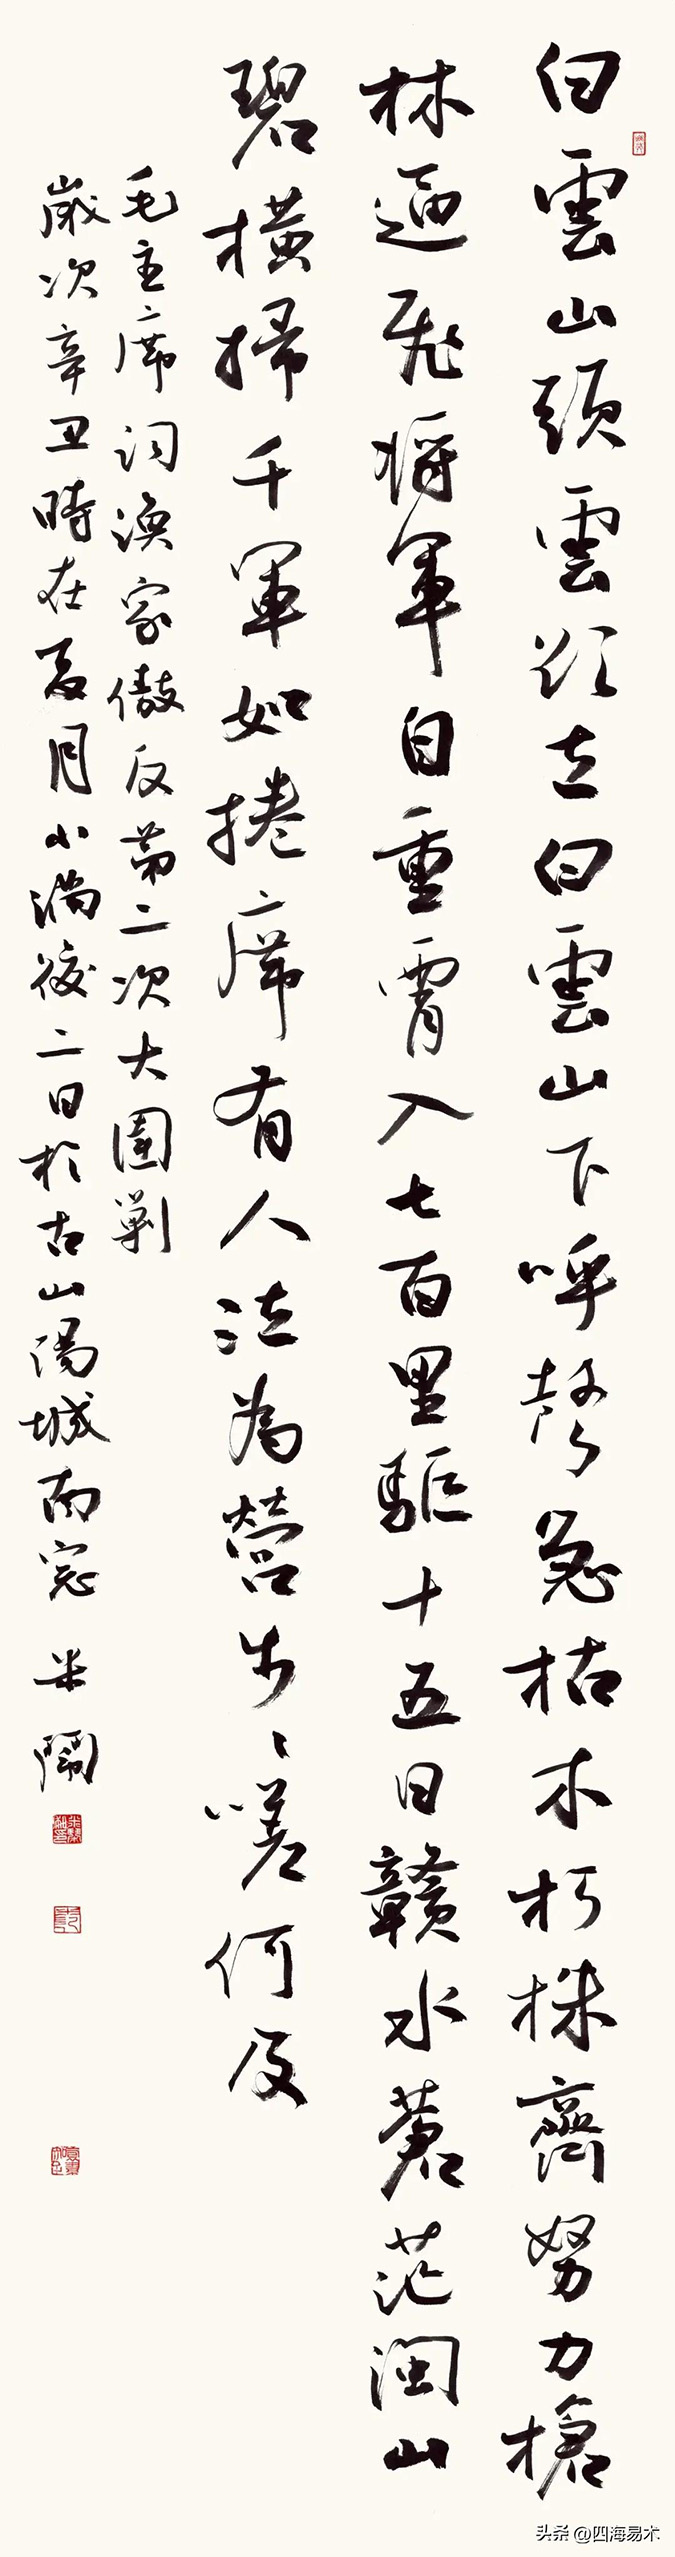 白雲山頭雲欲立白雲山下呼聲急枯木朽株齊努力槍
林逼飛將軍自重霄入七百里驅十五日贛水蒼茫閩山
碧橫掃千軍如捲席有人泣為營步〻嗟何及
毛主席詞漁家傲反第二次大圍剿
歲次辛丑時在夏月小滿後二日於古山陽城南窓 米鬧
头条 @四海易术